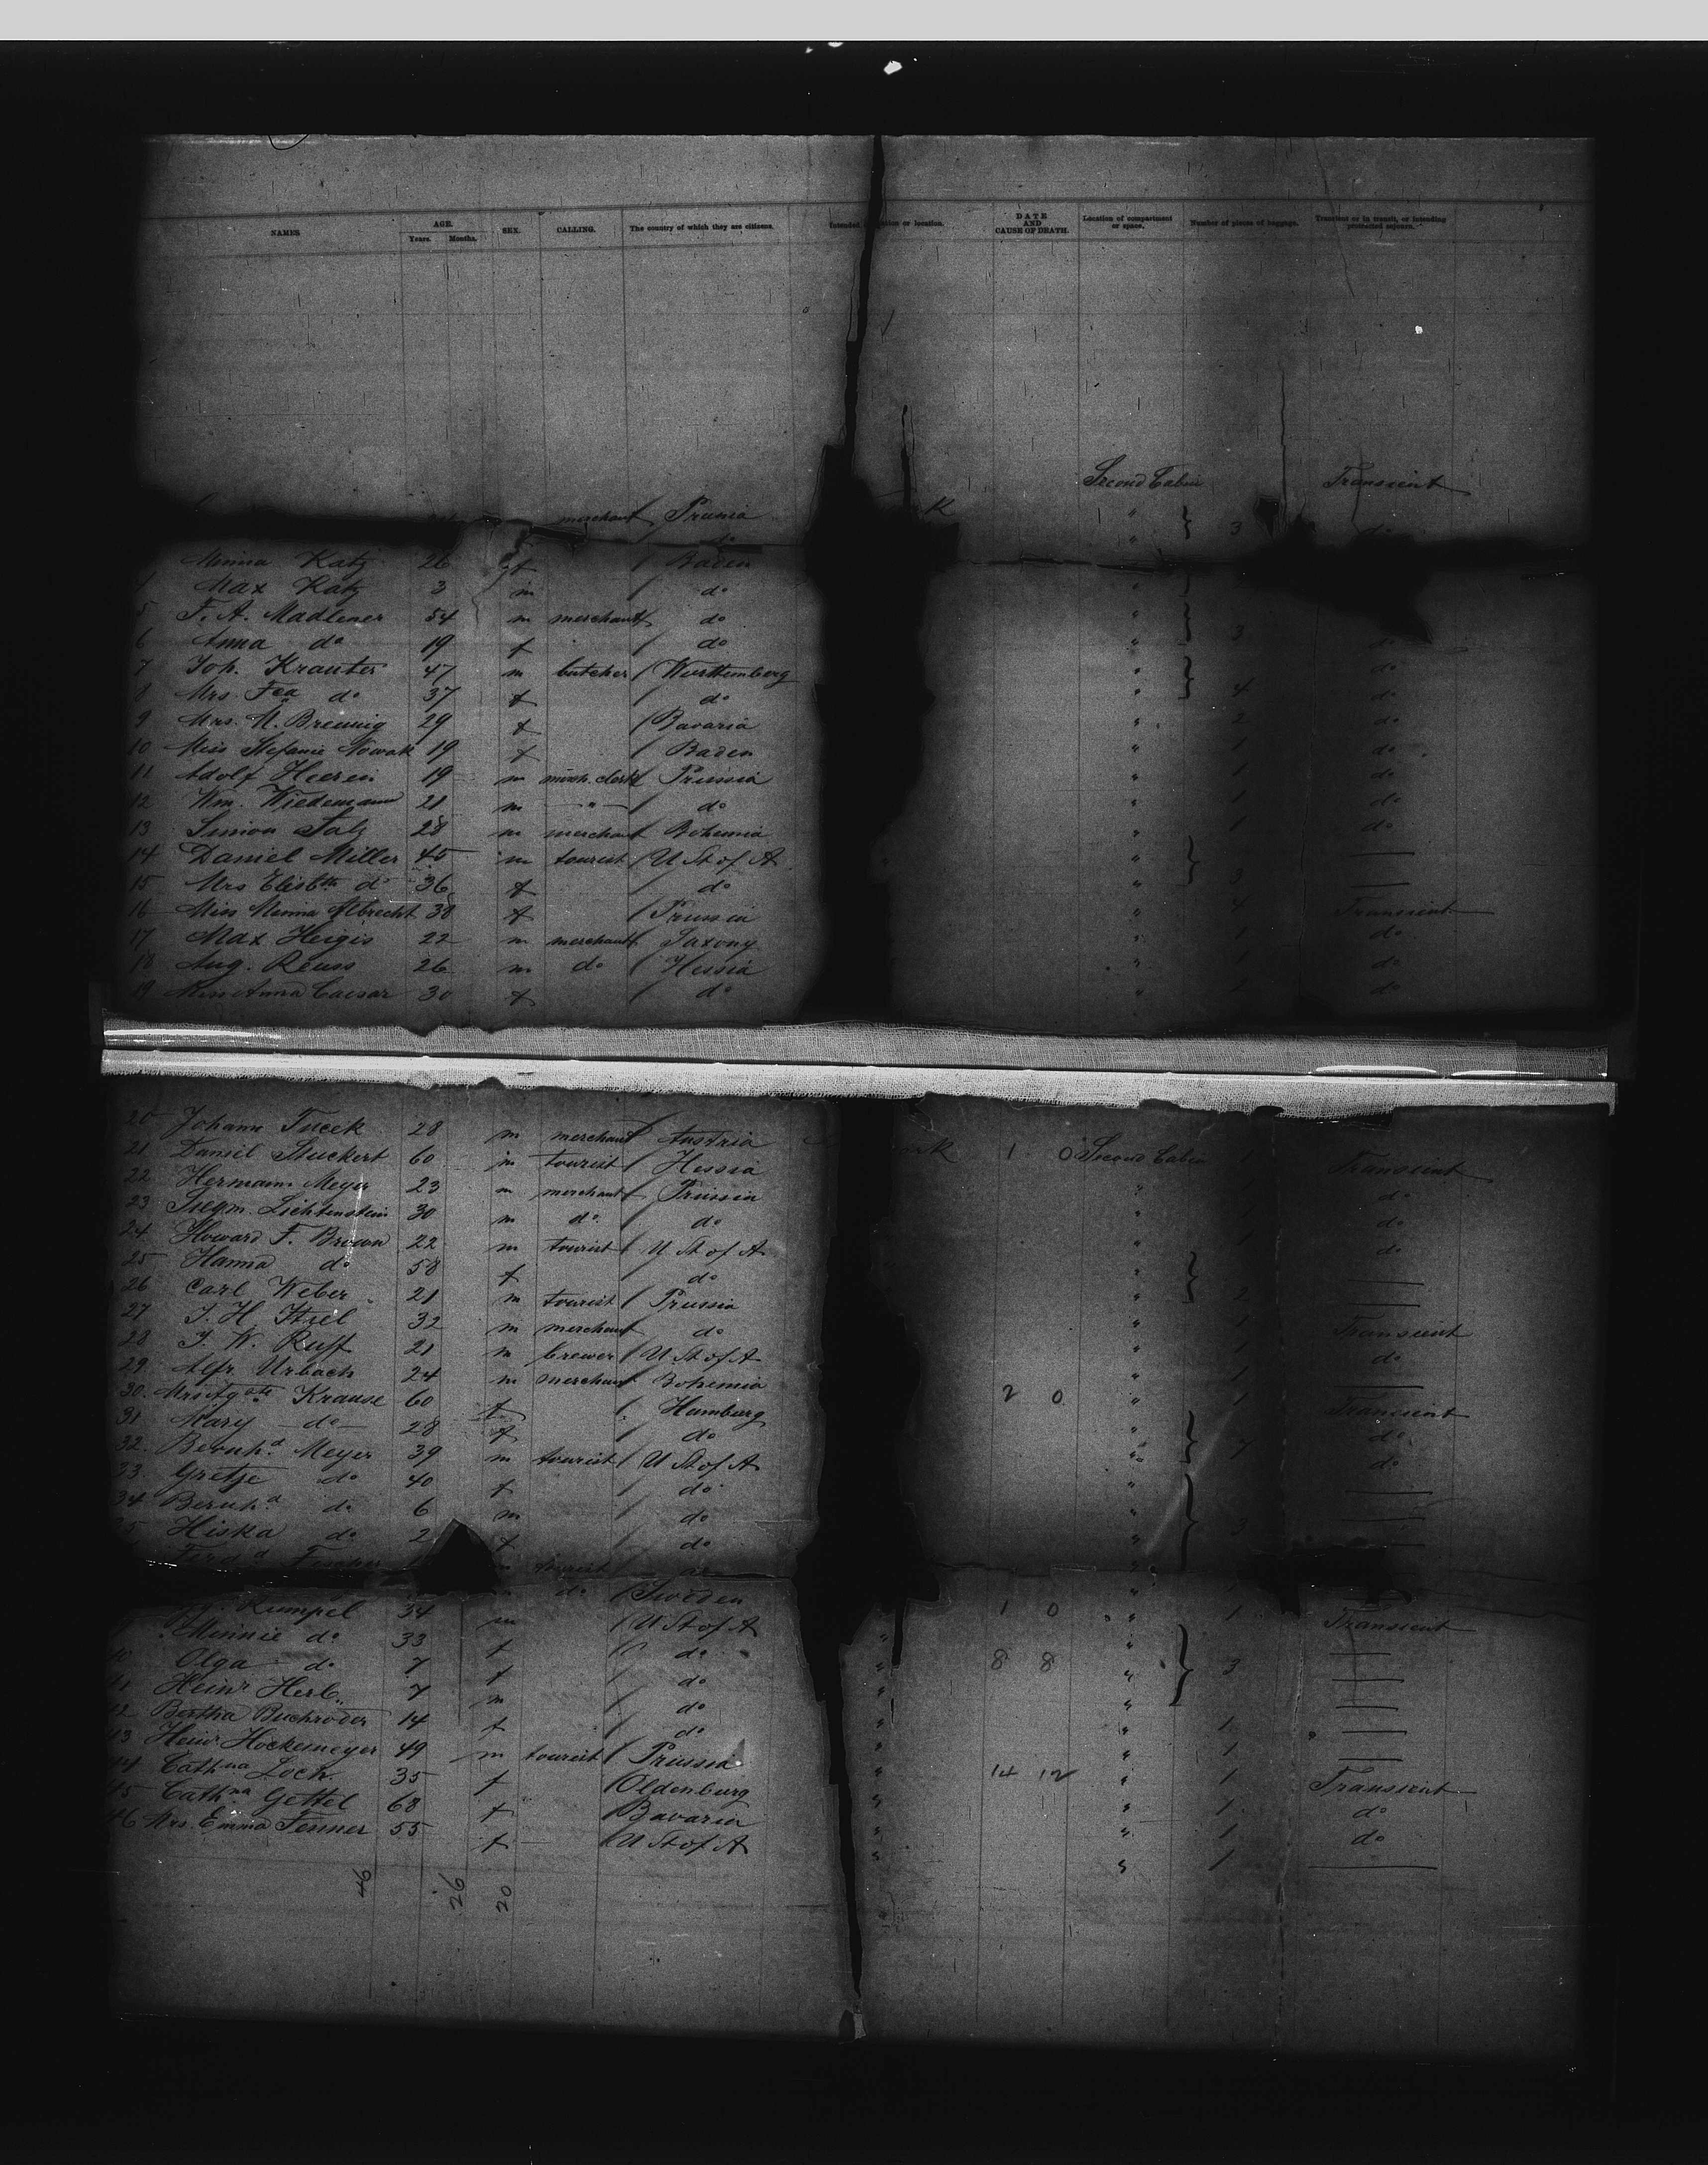 NAMES. AGE. Years. Months. SEX. CALLING. The country of which they are citizens. Intended or location. DATE AND CAUSE OF DEATH. Location of compartment or space. Number of pieces of baggage. Transient or in transit, or intending protracted sojourn.
Second Cabin Transient
merchant Prussia " 3
do "
Minna Katz 26 f Baden
Max Katz 3 m do "
5 F. A. Madlener 54 m merchant do "
6 Anna do 19 f do " 3 do
7 Joh. Krauter 47 m butcher Württemberg " do
8 Mrs. do 37 f do " 4 do
9 Mrs. M. Breunig 29 f Bavaria " 2 do
10 Miss Stefanie Nowak 19 f Baden " 1 do
11 Adolf Heeren 19 m merch. clerk Prussia " 1 do
12 Wm. Wiedemann 21 m " do " 1 do
13 Simon Salz 28 m merchant Bohemia " 1 do
14 Daniel Miller 45 m tourist U St of A "
15 Mrs Elisbth do 36 f do " 3
16 Miss Minna Albrecht 38 f Prussia " 4 Transient
17 Max Heigis 22 m merchant Saxony " 1 do
18 Aug. Reuss 26 m do Hessia " 1 do
19 Miss Anna Caesar 30 f do " 1 do
20 Johann Tucek 28 m merchant Austria 1 0 Second Cabin 1 Transient
21 Daniel Stuckert 60 m tourist Hessia " do
22 Hermann Meyer 23 m merchant Prussia " do
23 Siegm. Lichtenstein 30 m do do " 1 do
24 Howard F. Brown 22 m tourist U St of A "
25 Hanna do 58 f do " 2
26 Carl Weber 21 m tourist Prussia " 1 Transient
27 J. H. Itzel 32 m merchant do " 1 do
28 J. W. Ruff 21 m brewer U St of A " 1
29 Alfr. Urbach 24 m merchant Bohemia 2 0 " 1 Transient
30. Mrs Krause 60 f Hamburg " do
31 Mary do 28 f do " 7 do
32. Bernhd Meyer 39 m tourist U St of A "
33. Gretje do 40 f do "
34 Bernhd do 6 m do " 3
35 Hiska do 2 f do "
Ferdd Fischer tourist do "
do Sweden 1 0 " 1 Transient
Rumpel 34 m U St of A "
Minnie do 33 f do " 8 8 " 3
40 Olga do 7 f do "
41 Heinr Herb. 7 m do " 1
42 Bertha Buchroder 14 f do " 1
43 Heinr. Hockemeyer 49 m tourist Prussia " 14 12 " 1 Transient
44 Cathna Loch. 35 f Oldenburg " 1 do
45 Cathna Gettel 68 f Bavaria " 1 do
46 Mrs. Emma Fenner 55 f U St of A " 1
46 26 20